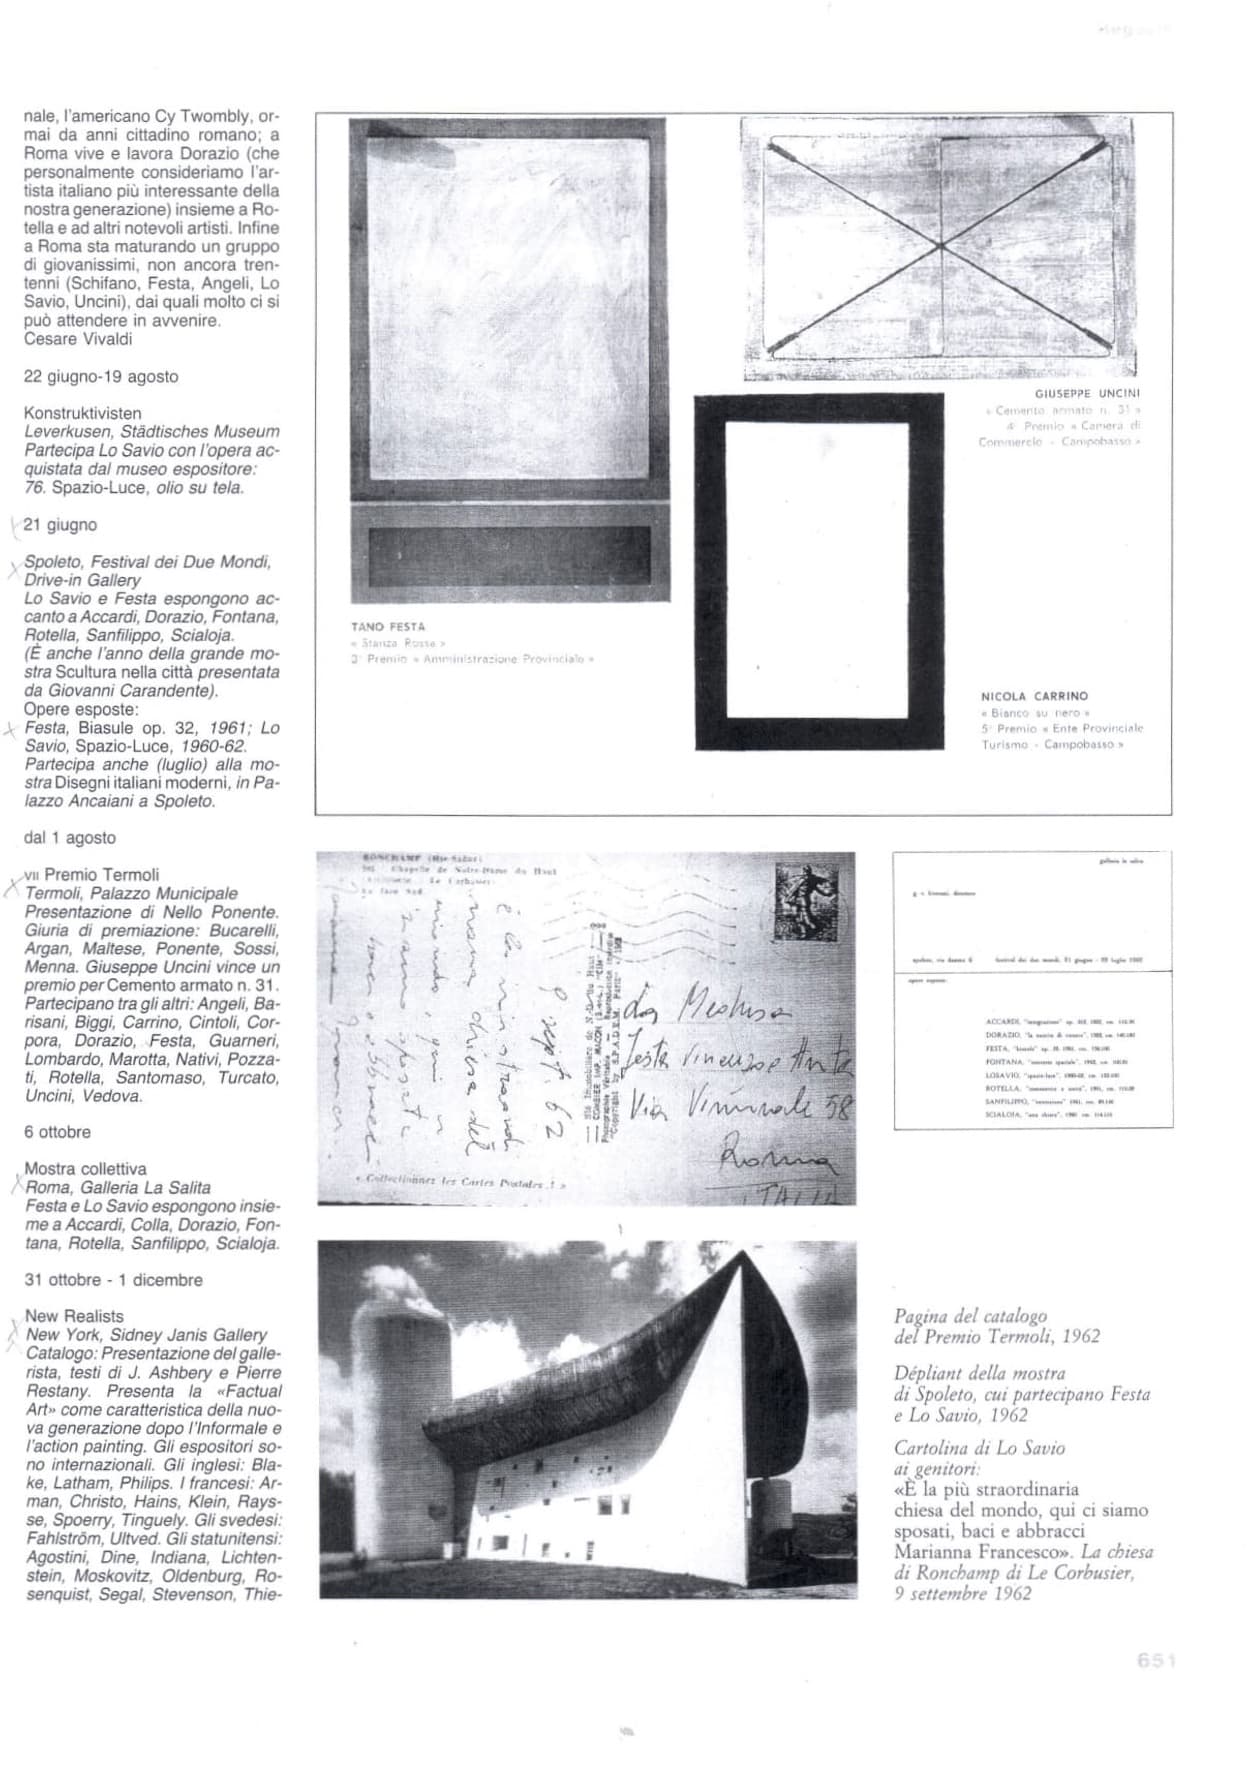 nale, l'americano Cy Twombly, or-
mai da anni cittadino romano; a
Roma vive e lavora Dorazio (che
personalmente consideriamo l'ar-
tista italiano più interessante della
nostra generazione) insieme a Ro-
tella e ad altri notevoli artisti. Infine
a Roma sta maturando un gruppo
di giovanissimi, non ancora tren-
tenni (Schifano, Festa, Angeli, Lo
Savio, Uncini), dai quali molto ci si
può attendere in avvenire.
Cesare Vivaldi
22 giugno-19 agosto
Konstruktivisten
Leverkusen, Städtisches Museum
Partecipa Lo Savio con l'opera ac-
quistata dal museo espositore:
76. Spazio-Luce, olio su tela.
21 giugno
Spoleto, Festival dei Due Mondi,
Drive-in Gallery
Lo Savio e Festa espongono ac-
canto a Accardi, Dorazio, Fontana,
Rotella, Sanfilippo, Scialoja.
(È anche l'anno della grande mo-
stra Scultura nella città presentata
da Giovanni Carandente).
Opere esposte:
Festa, Biasule op. 32, 1961; Lo
Savio, Spazio-Luce, 1960-62.
Partecipa anche (luglio) alla mo-
stra Disegni italiani moderni, in Pa-
lazzo Ancaiani a Spoleto.
dal 1 agosto
VII Premio Termoli
Termoli, Palazzo Municipale
Presentazione di Nello Ponente.
Giuria di premiazione: Bucarelli,
Argan, Maltese, Ponente, Sossi,
Menna. Giuseppe Uncini vince un
premio per Cemento armato n. 31.
Partecipano tra gli altri: Angeli, Ba-
risani, Biggi, Carrino, Cintoli, Cor-
pora, Dorazio, Festa, Guarneri,
Lombardo, Marotta, Nativi, Pozza-
ti, Rotella, Santomaso, Turcato,
Uncini, Vedova.
6 ottobre
Mostra collettiva
Roma, Galleria La Salita
Festa e Lo Savio espongono insie-
me a Accardi, Colla, Dorazio, Fon-
tana, Rotella, Sanfilippo, Scialoja.
31 ottobre - 1 dicembre
New Realists
New York, Sidney Janis Gallery
Catalogo: Presentazione del galle-
rista, testi di J. Ashbery e Pierre
Restany. Presenta la «Factual
Art» come caratteristica della nuo-
va generazione dopo l'Informale e
l'action painting. Gli espositori so-
no internazionali. Gli inglesi: Bla-
ke, Latham, Philips. I francesi: Ar-
man, Christo, Hains, Klein, Rays-
se, Spoerry, Tinguely. Gli svedesi:
Fahlström, Ultved. Gli statunitensi:
Agostini, Dine, Indiana, Lichten-
stein, Moskovitz, Oldenburg, Ro-
senquist, Segal, Stevenson, Thie-
GIUSEPPE UNCINI
« Cemento armato n. 31 »
4° Premio « Camera di
Commercio - Campobasso »
TANO FESTA
« Stanza Rossa »
3° Premio « Amministrazione Provinciale »
NICOLA CARRINO
« Bianco su nero »
5° Premio « Ente Provinciale
Turismo - Campobasso »
RONCHAMP (Hte-Saône)
Chapelle de Notre-Dame du Haut
Le Corbusier
è la più straordi
naria chiesa del
mondo, qui ci
siamo sposati
baci e abbracci
9 sept. 62
Festa Vincenzo Anita
Via Viminale 58
Roma
ITALIA
« Collectionnez les Cartes Postales ! »
galleria la salita
spoleto
festival dei due mondi, 21 giugno - 22 luglio 1962
opere esposte:
ACCARDI, "integrazione"
DORAZIO
FESTA, "biasule"
FONTANA, "concetto spaziale"
LOSAVIO, "spazio-luce"
ROTELLA
SANFILIPPO
SCIALOIA
Pagina del catalogo
del Premio Termoli, 1962
Dépliant della mostra
di Spoleto, cui partecipano Festa
e Lo Savio, 1962
Cartolina di Lo Savio
ai genitori:
«È la più straordinaria
chiesa del mondo, qui ci siamo
sposati, baci e abbracci
Marianna Francesco». La chiesa
di Ronchamp di Le Corbusier,
9 settembre 1962
651